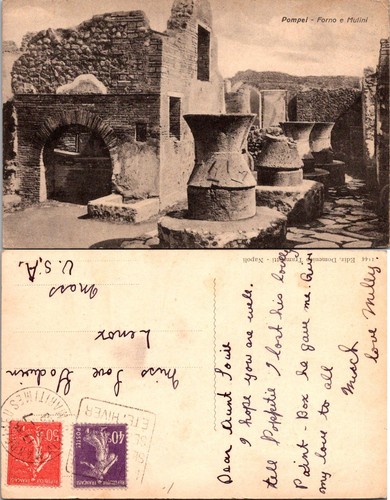 Pompei - Forno e Mulini
1144 Ediz. Domenico Trampetti - Napoli
Dear Aunt Love
I hope you are well.
tell Poppitie I lost his lovely
Paint-Box he gave me. Give
my love to all
Much
love Milly
Miss Love Godwin
Lenox
Mass
U.S.A.
50c
POSTES
40c
ETE. HIVER